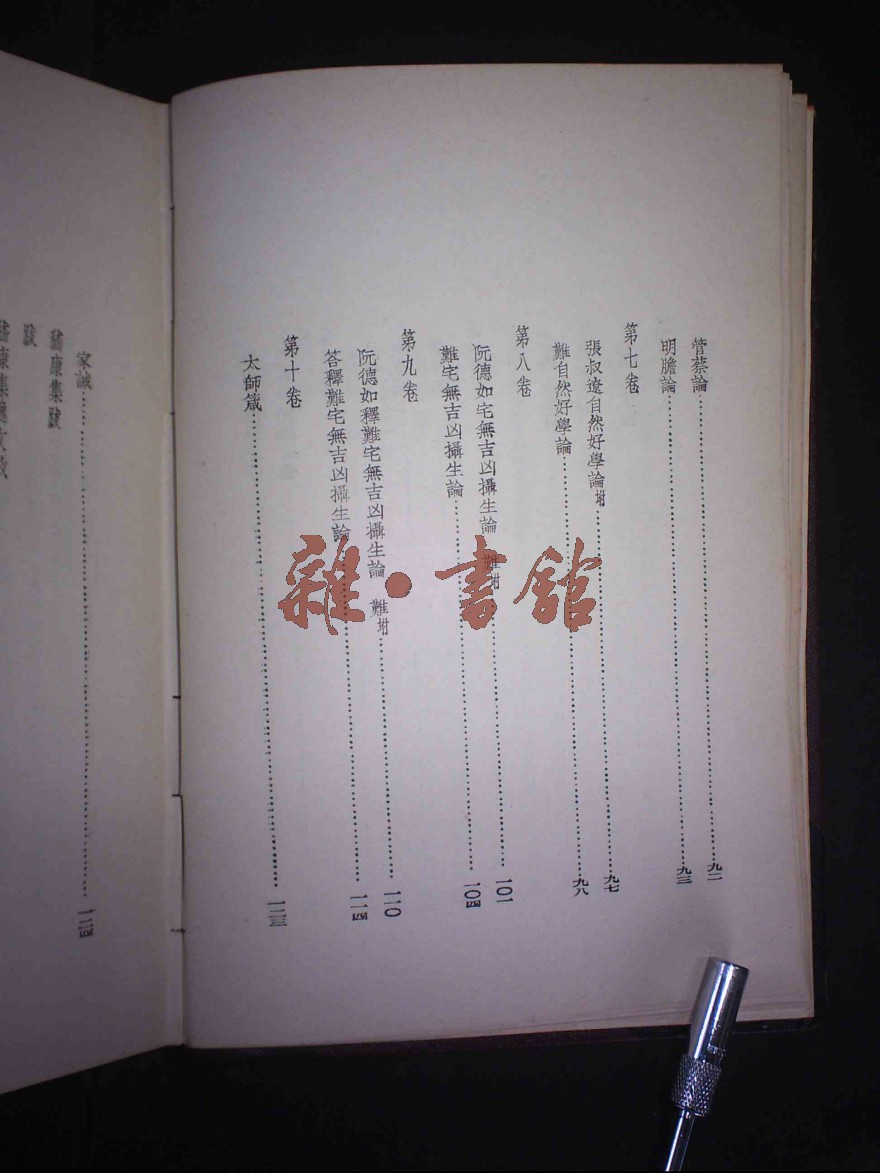 管蔡論……九二
明膽論……九三
第七卷
張叔遼自然好學論坿……九七
難自然好學論……九八
第八卷
阮德如宅無吉凶攝生論 難坿……一〇一
難宅無吉凶攝生論……一〇四
第九卷
阮德如釋難宅無吉凶攝生論 難坿……一一〇
答釋難宅無吉凶攝生論……一一四
第十卷
太師箴……一二三
家誡……一二四
嵇康集跋
跋
雜·書館